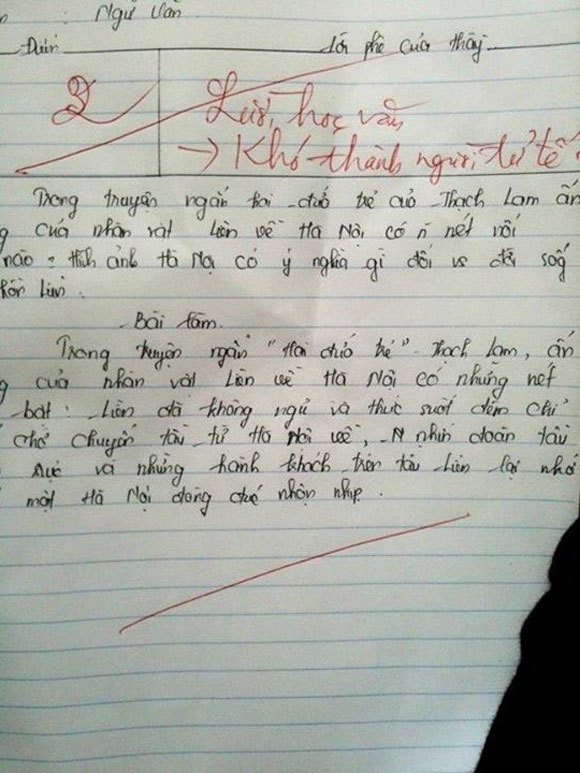 : Ngữ Văn
Điểm Lời phê của thầy
2 Lười học văn
→ Khó thành người tử tế
Trong truyện ngắn hai đứa trẻ của Thạch Lam ấn
g của nhân vật Liên về Hà Nội có n nét nổi
nào = Hình ảnh Hà Nội có ý nghĩa gì đối vs đời sống
Liên.
Bài làm
Trong truyện ngắn "Hai đứa trẻ" - Thạch Lam, ấn
g của nhân vật Liên về Hà Nội có những nét
bật: Liên đã không ngủ và thức suốt đêm chỉ
chờ chuyến tàu từ Hà Nội về, nhìn đoàn tàu
rực và những hành khách trên tàu Liên lại nhớ
một Hà Nội đông nhộn nhịp.